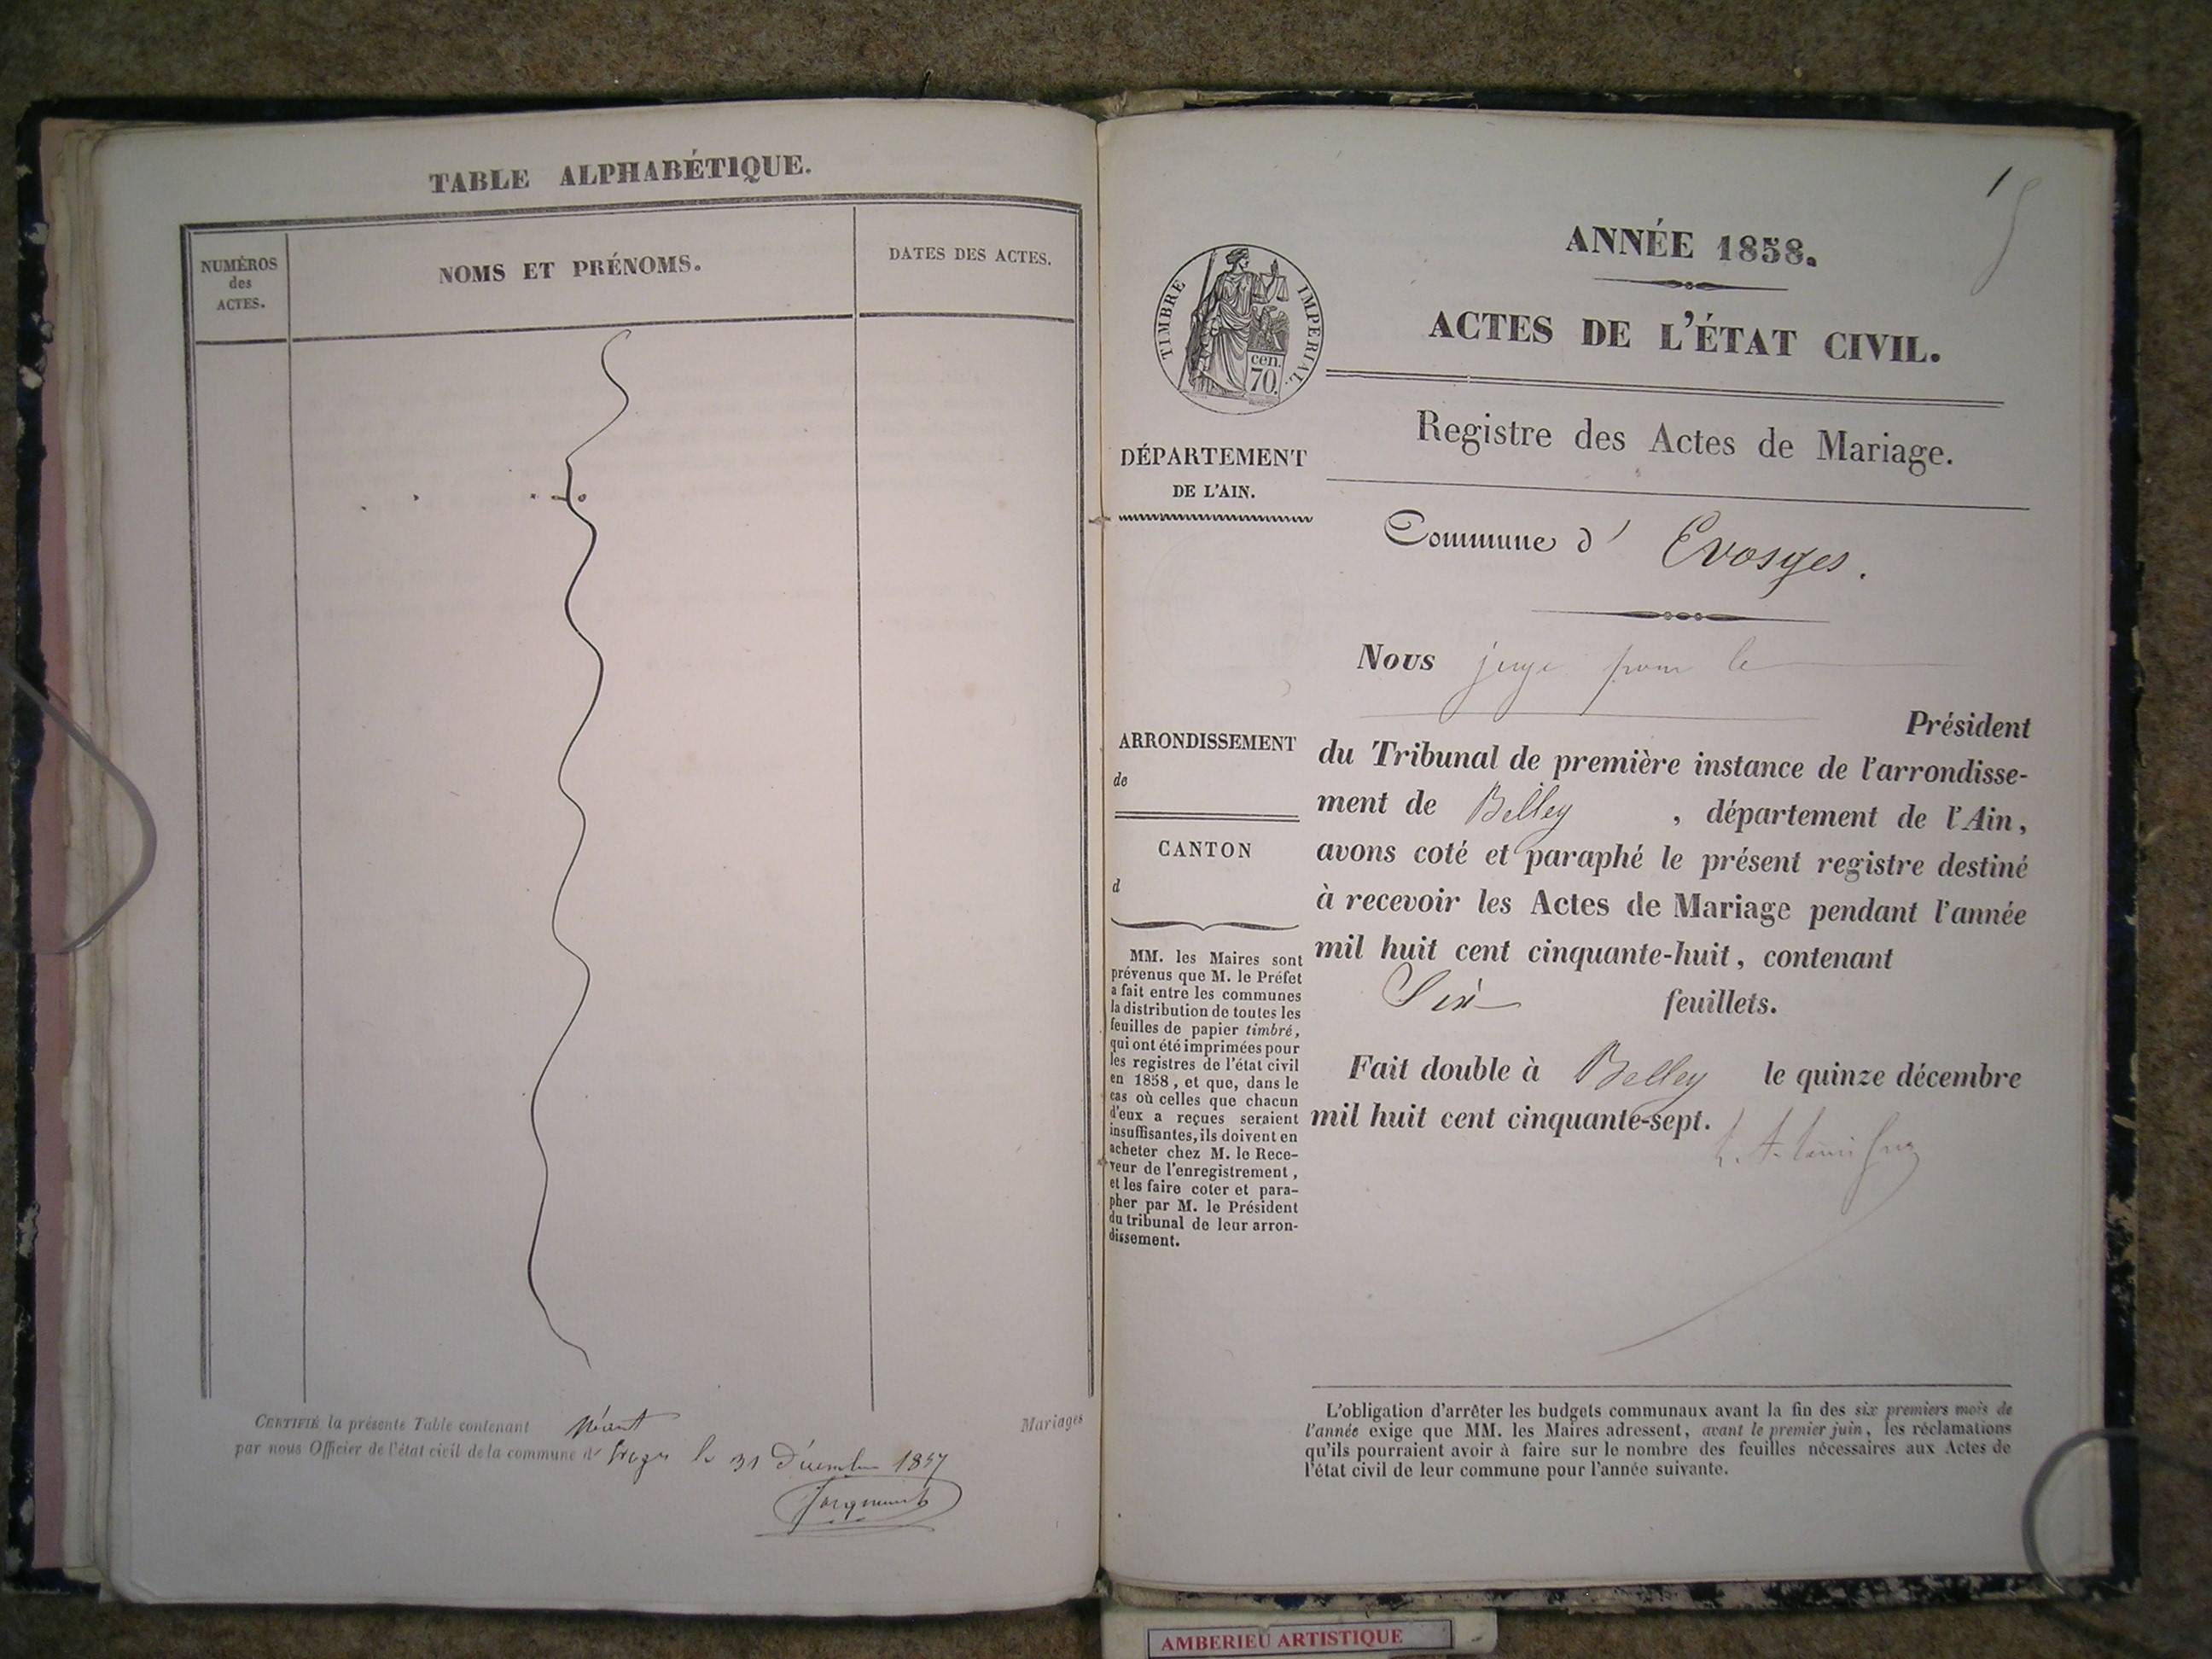 TABLE ALPHABÉTIQUE.
NUMÉROS
des
ACTES.
NOMS ET PRÉNOMS.
DATES DES ACTES.
CERTIFIÉ la présente Table contenant Néant Mariages
par nous Officier de l'état civil de la commune d' le 31 Décembre 1857
1
TIMBRE IMPERIAL.
cen.
70.
ANNÉE 1858.
ACTES DE L'ÉTAT CIVIL.
DÉPARTEMENT
DE L'AIN.
Registre des Actes de Mariage.
Commune d' Evosges.
Nous juge pour le
Président
ARRONDISSEMENT
de
CANTON
d
du Tribunal de première instance de l'arrondisse-
ment de Belley , département de l'Ain,
avons coté et paraphé le présent registre destiné
à recevoir les Actes de Mariage pendant l'année
mil huit cent cinquante-huit, contenant
Six feuillets.
Fait double à Belley le quinze décembre
mil huit cent cinquante-sept.
MM. les Maires sont
prévenus que M. le Préfet
a fait entre les communes
la distribution de toutes les
feuilles de papier timbré,
qui ont été imprimées pour
les registres de l'état civil
en 1858, et que, dans le
cas où celles que chacun
d'eux a reçues seraient
insuffisantes, ils doivent en
acheter chez M. le Rece-
veur de l'enregistrement,
et les faire coter et para-
pher par M. le Président
du tribunal de leur arron-
dissement.
L'obligation d'arrêter les budgets communaux avant la fin des six premiers mois de
l'année exige que MM. les Maires adressent, avant le premier juin, les réclamations
qu'ils pourraient avoir à faire sur le nombre des feuilles nécessaires aux Actes de
l'état civil de leur commune pour l'année suivante.
AMBERIEU ARTISTIQUE